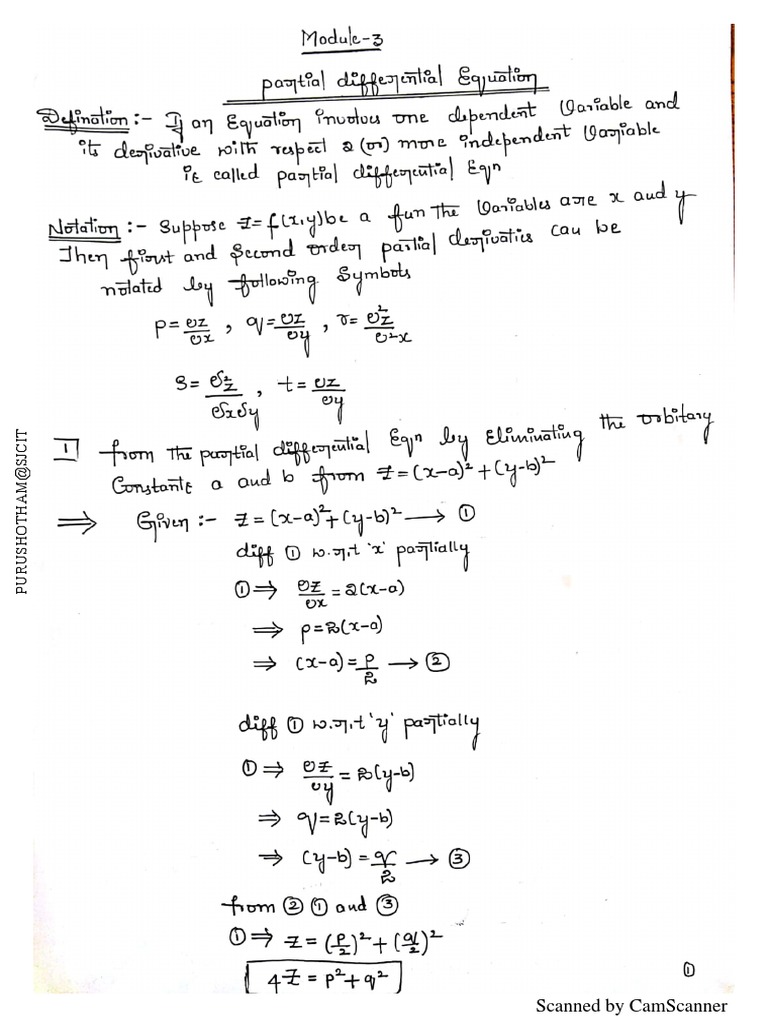 Module-3
partial differential Equation
Defination :- If an Equation involves one dependent Variable and
its derivative with respect 2 (or) more independent Variable
it called partial differential Eqn
Notation :- Suppose z=f(x,y) be a fun The Variables are x and y
Then first and Second order partial derivatics can be
notated by following Symbols
p=∂z/∂x , q=∂z/∂y , r=∂²z/∂²x
S=∂²z/∂x∂y , t=∂z/∂y
I from the partial differential Eqn by Eliminating the orbitary
Constants a and b from z=(x-a)²+(y-b)²
⇒ Given :- z=(x-a)²+(y-b)² → ①
diff ① w.r.t 'x' partially
①⇒ ∂z/∂x=2(x-a)
⇒ p=2(x-a)
⇒ (x-a)=p/2 → ②
diff ① w.r.t 'y' partially
①⇒ ∂z/∂y=2(y-b)
⇒ q=2(y-b)
⇒ (y-b)=q/2 → ③
from ② ① and ③
①⇒ z=(p/2)²+(q/2)²
4z=p²+q²
①
PURUSHOTHAM@SJCIT
Scanned by CamScanner